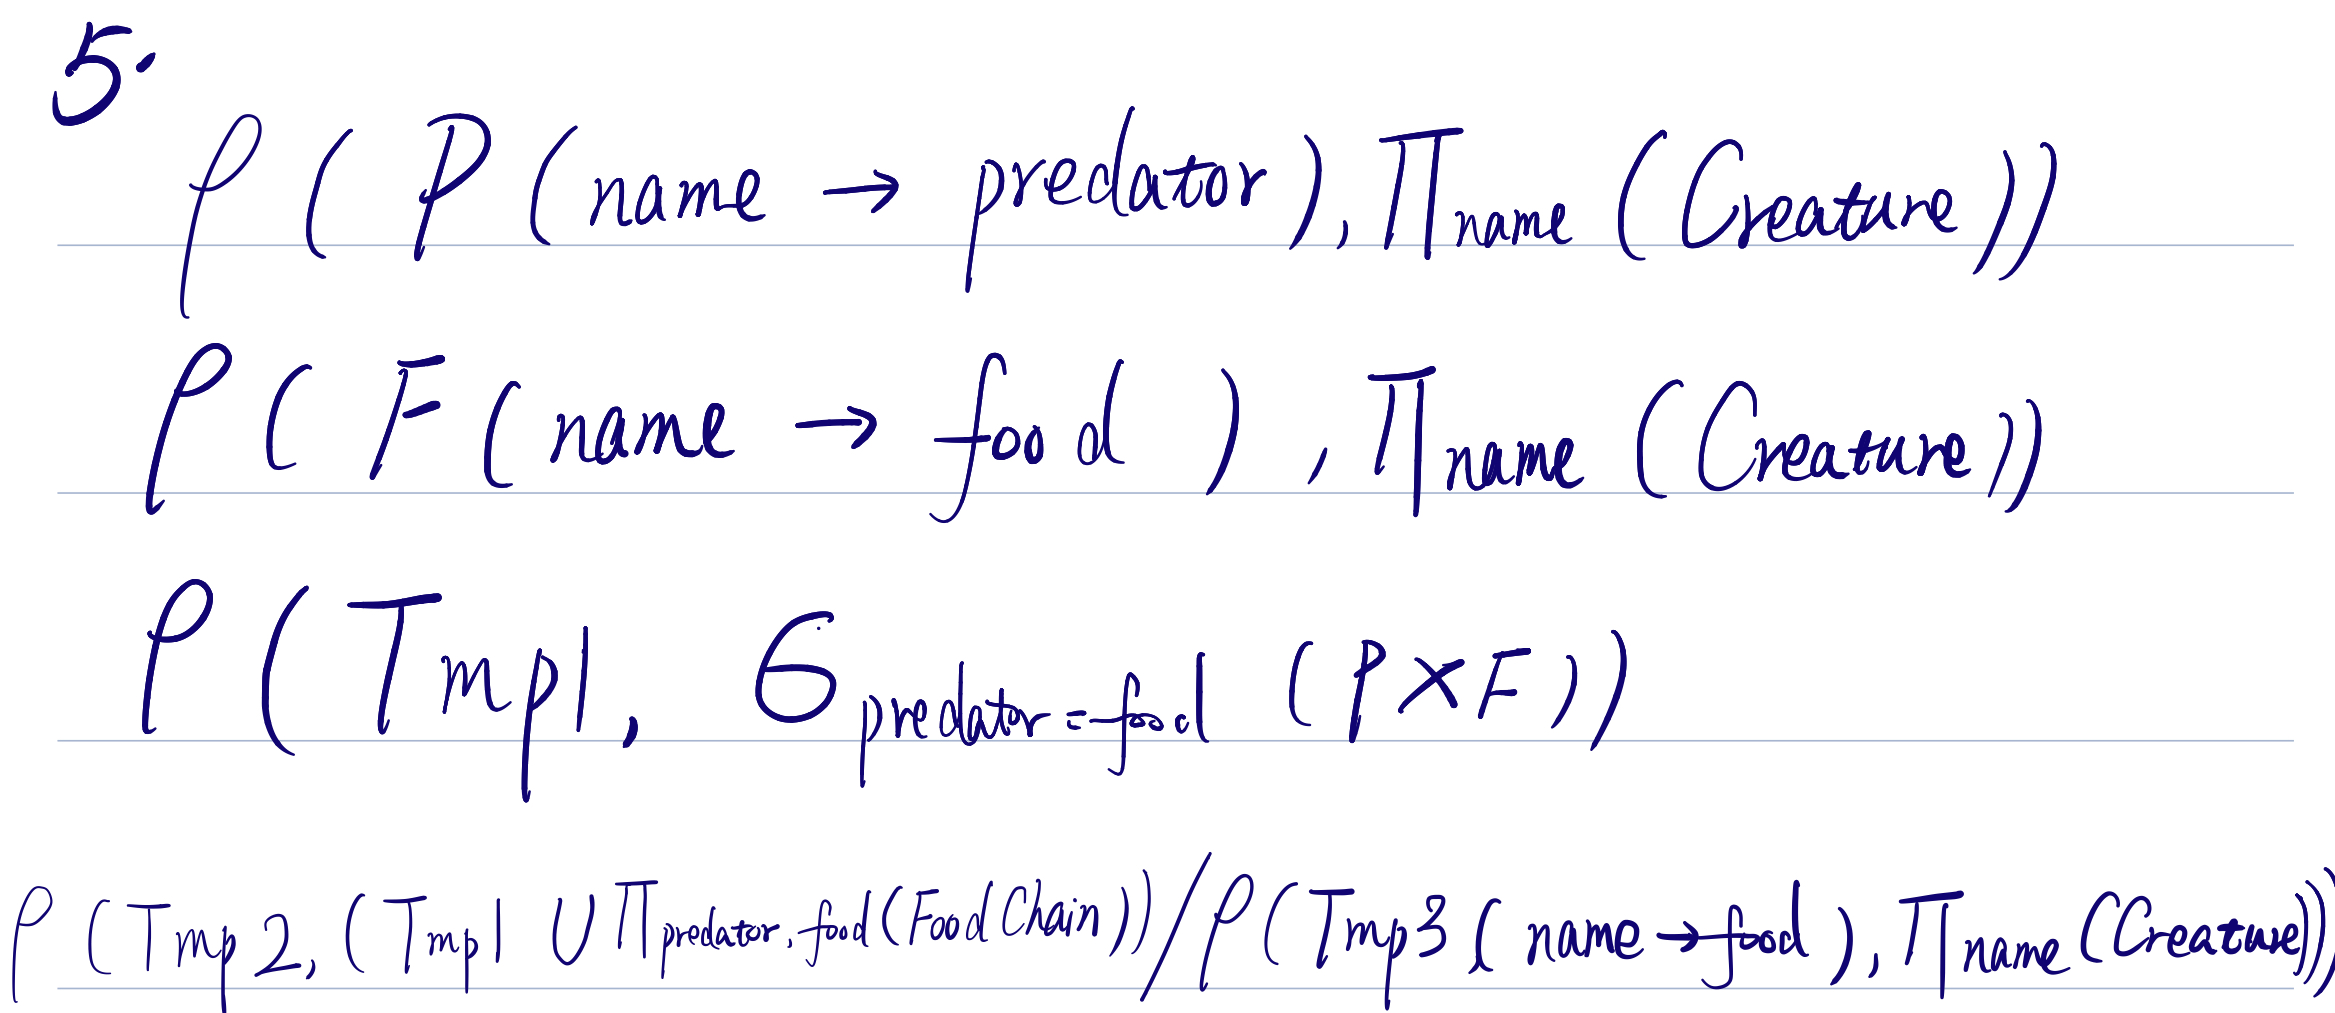 5.
ρ ( P ( name → predator ), Π name ( Creature ))
ρ ( F ( name → food ) , Π name ( Creature ))
ρ ( Tmp1, σ predator = food ( P × F ))
ρ ( Tmp2, ( Tmp1 ∪ Π predator, food ( Food Chain )) / ρ ( Tmp3 ( name → food ), Π name ( Creature )))